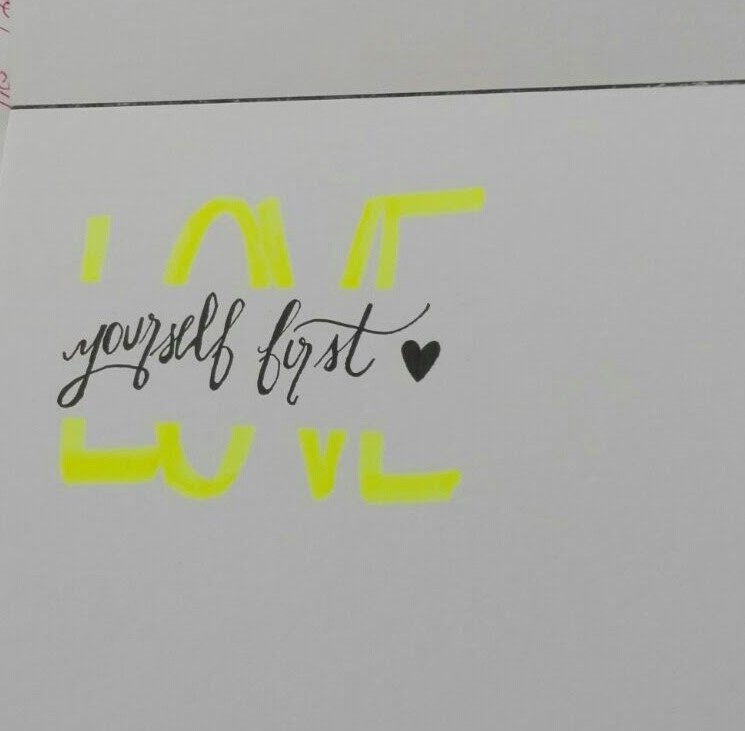 LOVE
yourself first ♥